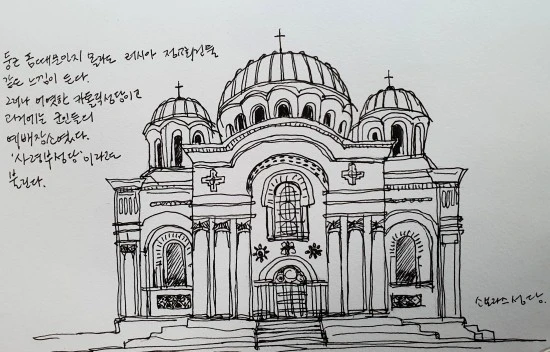 둥근 돔때문인지 몰라도 러시아 정교회건물
같은 느낌이 든다.
그러나 어엿한 카톨릭성당이고
과거에는 군인들의
예배장소였다.
'사령부성당'이라고도
불린다.
소보라스성당.